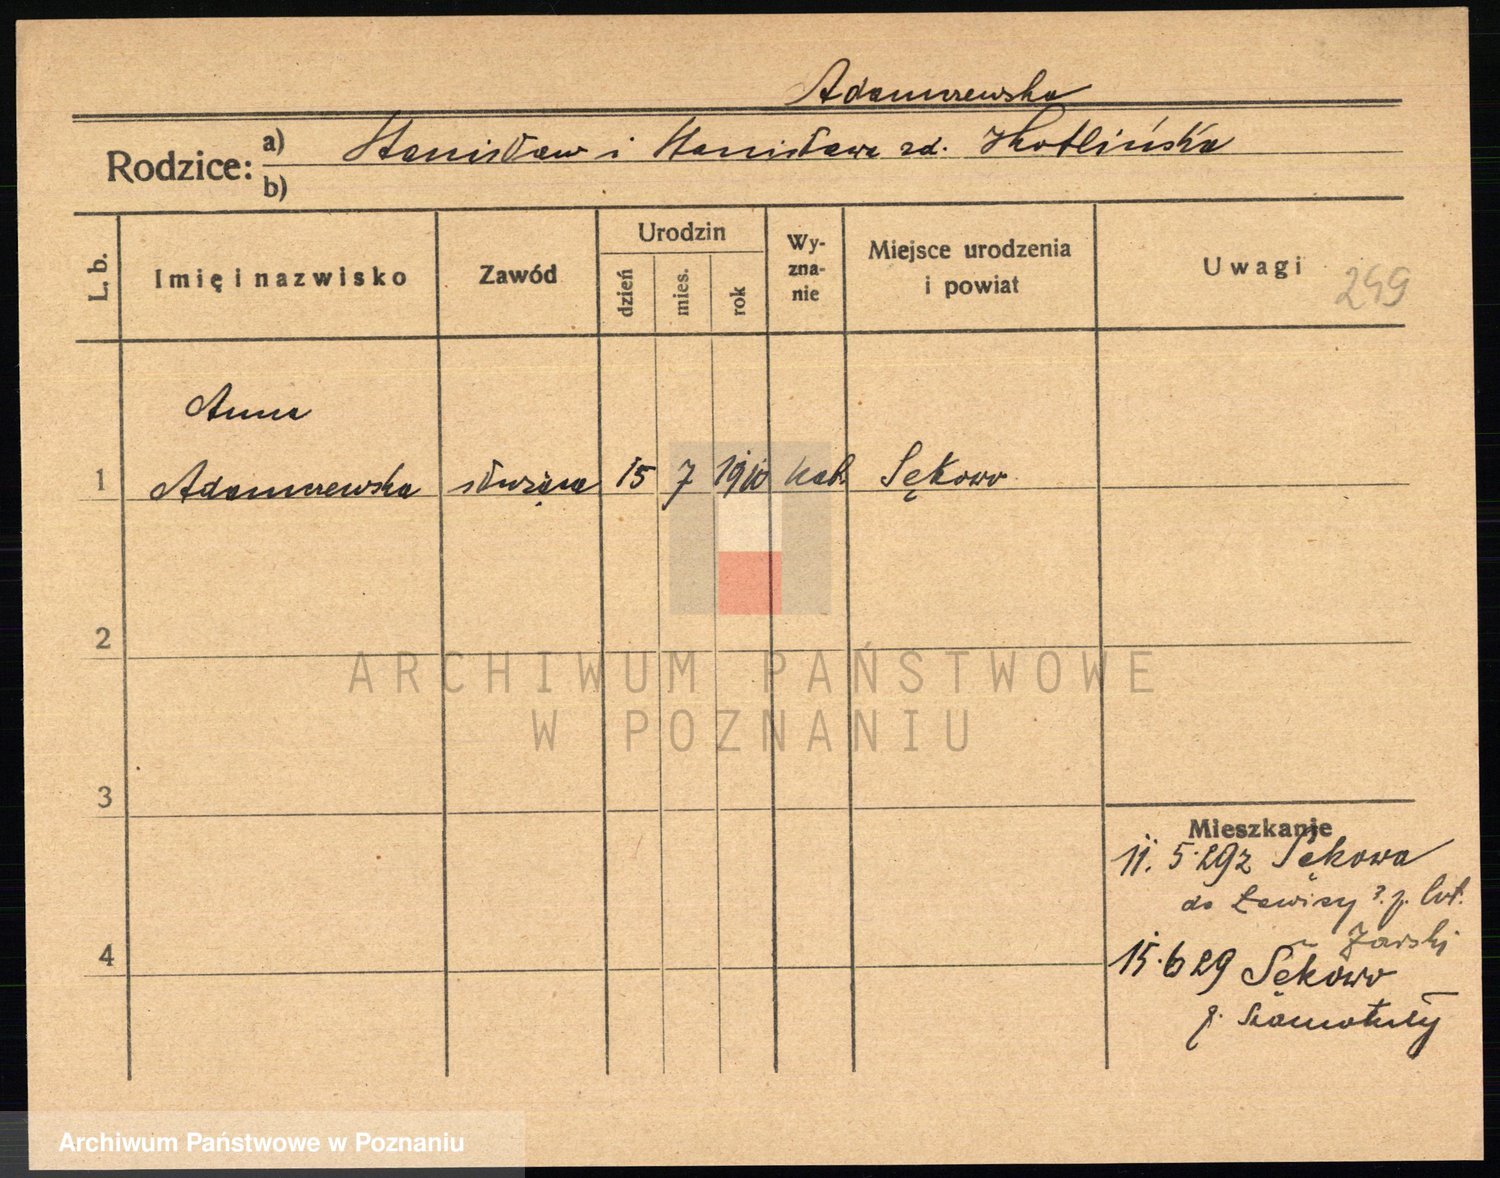 Adamczewska
Rodzice: a) Stanisław i Stanisława zd. Kotlińska
b)
L. b. Imię i nazwisko Zawód Urodzin dzień mies. rok Wy-zna-nie Miejsce urodzenia i powiat Uwagi 249
Anna
1 Adamczewska służąca 15 7 1910 kat. Sękowo
2
ARCHIWUM PAŃSTWOWE
W POZNANIU
3
Mieszkanie
11. 5. 29 z Sękowa
do Ławicy ? p. Lot.
Jarski
4
15. 6 29 Sękowo
p. Szamotuły
Archiwum Państwowe w Poznaniu